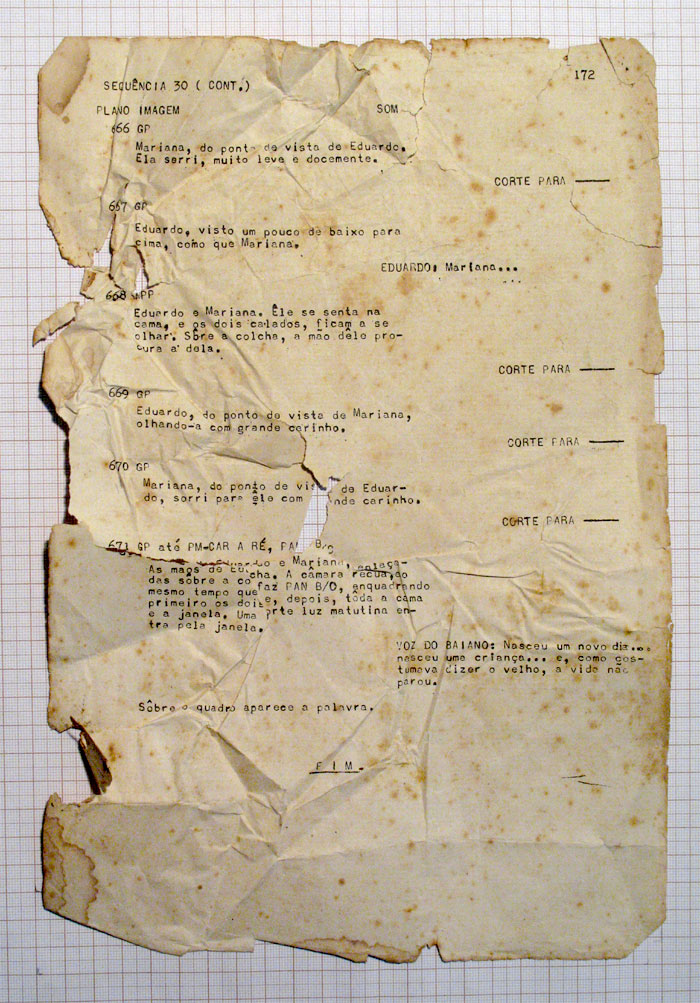 172
SEQUÊNCIA 30 ( CONT.)
PLANO IMAGEM SOM
666 GP
Mariana, do pont de vista de Eduardo.
Ela sorri, muito leve e docemente.
CORTE PARA
667 GP
Eduardo, visto um pouco de baixo para
cima, como que Mariana.
EDUARDO: Mariana...
668 PP
Eduardo e Mariana. Êle se senta na
cama, e os dois calados, ficam a se
olhar. Sôbre a colcha, a mão dêle pro-
cura a dela.
CORTE PARA
669 GP
Eduardo, do ponto de vista de Mariana,
olhando-a com grande carinho.
CORTE PARA
670 GP
Mariana, do ponto de vist de Eduar-
do, sorri para êle com nde carinho.
CORTE PARA
671 GP até PM-CAR A RÉ, PAN B/C
As mãos de Eduardo e Mariana, enlaça-
das sôbre a colcha. A câmara recua, ao
mesmo tempo que faz PAN B/C, enquadrando
primeiro os dois e, depois, tôda a cama
e a janela. Uma orte luz matutina en-
tra pela janela.
VOZ DO BAIANO: Nasceu um novo dia...
nasceu uma criança... e, como cos-
tumava dizer o velho, a vida não
parou.
Sôbre o quadro aparece a palavra.
F I M.